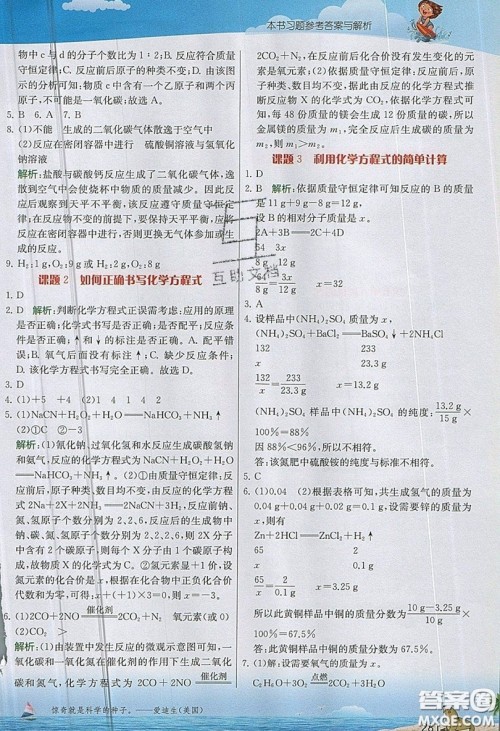 本书习题参考答案与解析
物中c与d的分子个数比为1:2；B、反应符合质量
守恒定律；C、反应前后原子的种类不变；D、由该图
示的分析可知；物质c中含有一个乙原子和两个丙
原子；不可能是一氧化碳；故选A。
5. B 6. A 7. B
8. (1)不能 生成的二氧化碳气体散逸于空气中
(2)反应在密闭容器中进行 硫酸铜溶液与氢氧化
钠溶液
解析:盐酸与碳酸钙反应生成了二氧化碳气体，逸
散到空气中会使烧杯中物质的质量减少。因此，反
应后观察到天平不平衡，该反应遵守质量守恒定
律。在反应物不变的前提下，要保持天平平衡，应将
反应在密闭容器中进行，或者换成没有气体参加或
生成的反应。
9. H₂:2 g,O₂:9 g或 H₂:1 g,O₂:10 g
课题 2 如何正确书写化学方程式
1. D
2. D 解析:判断化学方程式正误需考虑：应用的原理
是否正确；化学式书写是否正确；配平是否正确；反应
条件是否正确；↑和↓的标注是否正确。A、配平错
误；B、氧气后面没有标注↑；C、缺少反应条件；
D、该化学方程式书写完全正确。故选D。
3. D
4. (1)+5 +4 (2)0 +2 (3)-1 -2
5. (1)NaCN+H₂O₂+H₂O══NaHCO₃+NH₃↑
(2)①C ②-3
解析:(1)氰化钠、过氧化氢和水反应生成碳酸氢钠
和氨气，反应的化学方程式为 NaCN+H₂O₂+H₂O
══NaHCO₃+NH₃↑。(2)由质量守恒定律可知，反应前后，
原子种类、数目均不变，由反应的化学方程式
2Na+2X+2NH₃══2NaCN+3H₂，反应前钠、
氮、氢原子个数分别为2、2、6，反应后的生成物中
钠、碳、氮、氢原子个数分别为2、2、2、6，则2X分子
中含有2个碳原子，则每个X由1个碳原子构成，
则物质X的化学式为C。根据在化合物中正负化合价
代数和为零，可得:x+(+1)=(+4)+(-1)×2，x=-3。
6. (1)2CO+2NO 催化剂══ N₂+2CO₂ 氧元素(或0)
(2)CO₂ >
解析:(1)由装置中发生反应的微观示意图可知，一
氧化碳和一氧化氮在催化剂的作用下生成二氧化
碳和氮气，反应的化学方程式为 2CO+2NO 催化剂══
2CO₂+N₂，在反应前后化合价发生改变的是碳元素
和氮元素。(2)依据质量守恒定律，反应前后原子种
类、原子数目均不变，据此由反应的化学方程式推
断反应物X的化学式为CO₂；根据化学方程式可知，
每48份质量的镁会生成12份质量的碳，所以金
属镁的质量为m₁，完全反应后生成碳的质量为
m₂，则m₁>m₂。
课题 3 利用化学方程式的简单计算
1. D
2. B 解析:依据质量守恒定律可知反应的B的质量
是11 g+9 g-8 g=12 g。
设B的相对分子质量为x。
2A+3B══2C+4D
64 3x
8 g 12 g
64/8 g=3x/12 g x=32
3. A
4. 设样品中(NH₄)₂SO₄的质量为x。
(NH₄)₂SO₄+BaCl₂══BaSO₄↓+2NH₄Cl
132 233
x 23.3 g
132/x=233/23.3 g x=13.2 g
(NH₄)₂SO₄样品中(NH₄)₂SO₄的质量分数为13.2 g/15 g×
100%=88%。
因为88%<96%，所以不相符。
答:该氮肥中硫酸铵的纯度与标签不相符。
5. C
6. (1)0.04 (2)根据表格可知，共生成氢气的质量为
0.04 g+0.04 g+0.02 g=0.1 g，设需要锌的质量为x。
Zn+2HCl══ZnCl₂+H₂↑
65 2
x 0.1 g
65/x=2/0.1 g x=3.25 g
所以此黄铜样品中铜的质量分数为(10 g-3.25 g)/10 g×
100%=67.5%。
答:此黄铜样品中铜的质量分数为67.5%。
7. (1)解:设生成氧化镁的质量为x。
C₃H₈O₃ 点燃 H₂O
惊奇就是科学的种子。——爱迪生(美国)
互助文档
答案圈
MXQE.COM